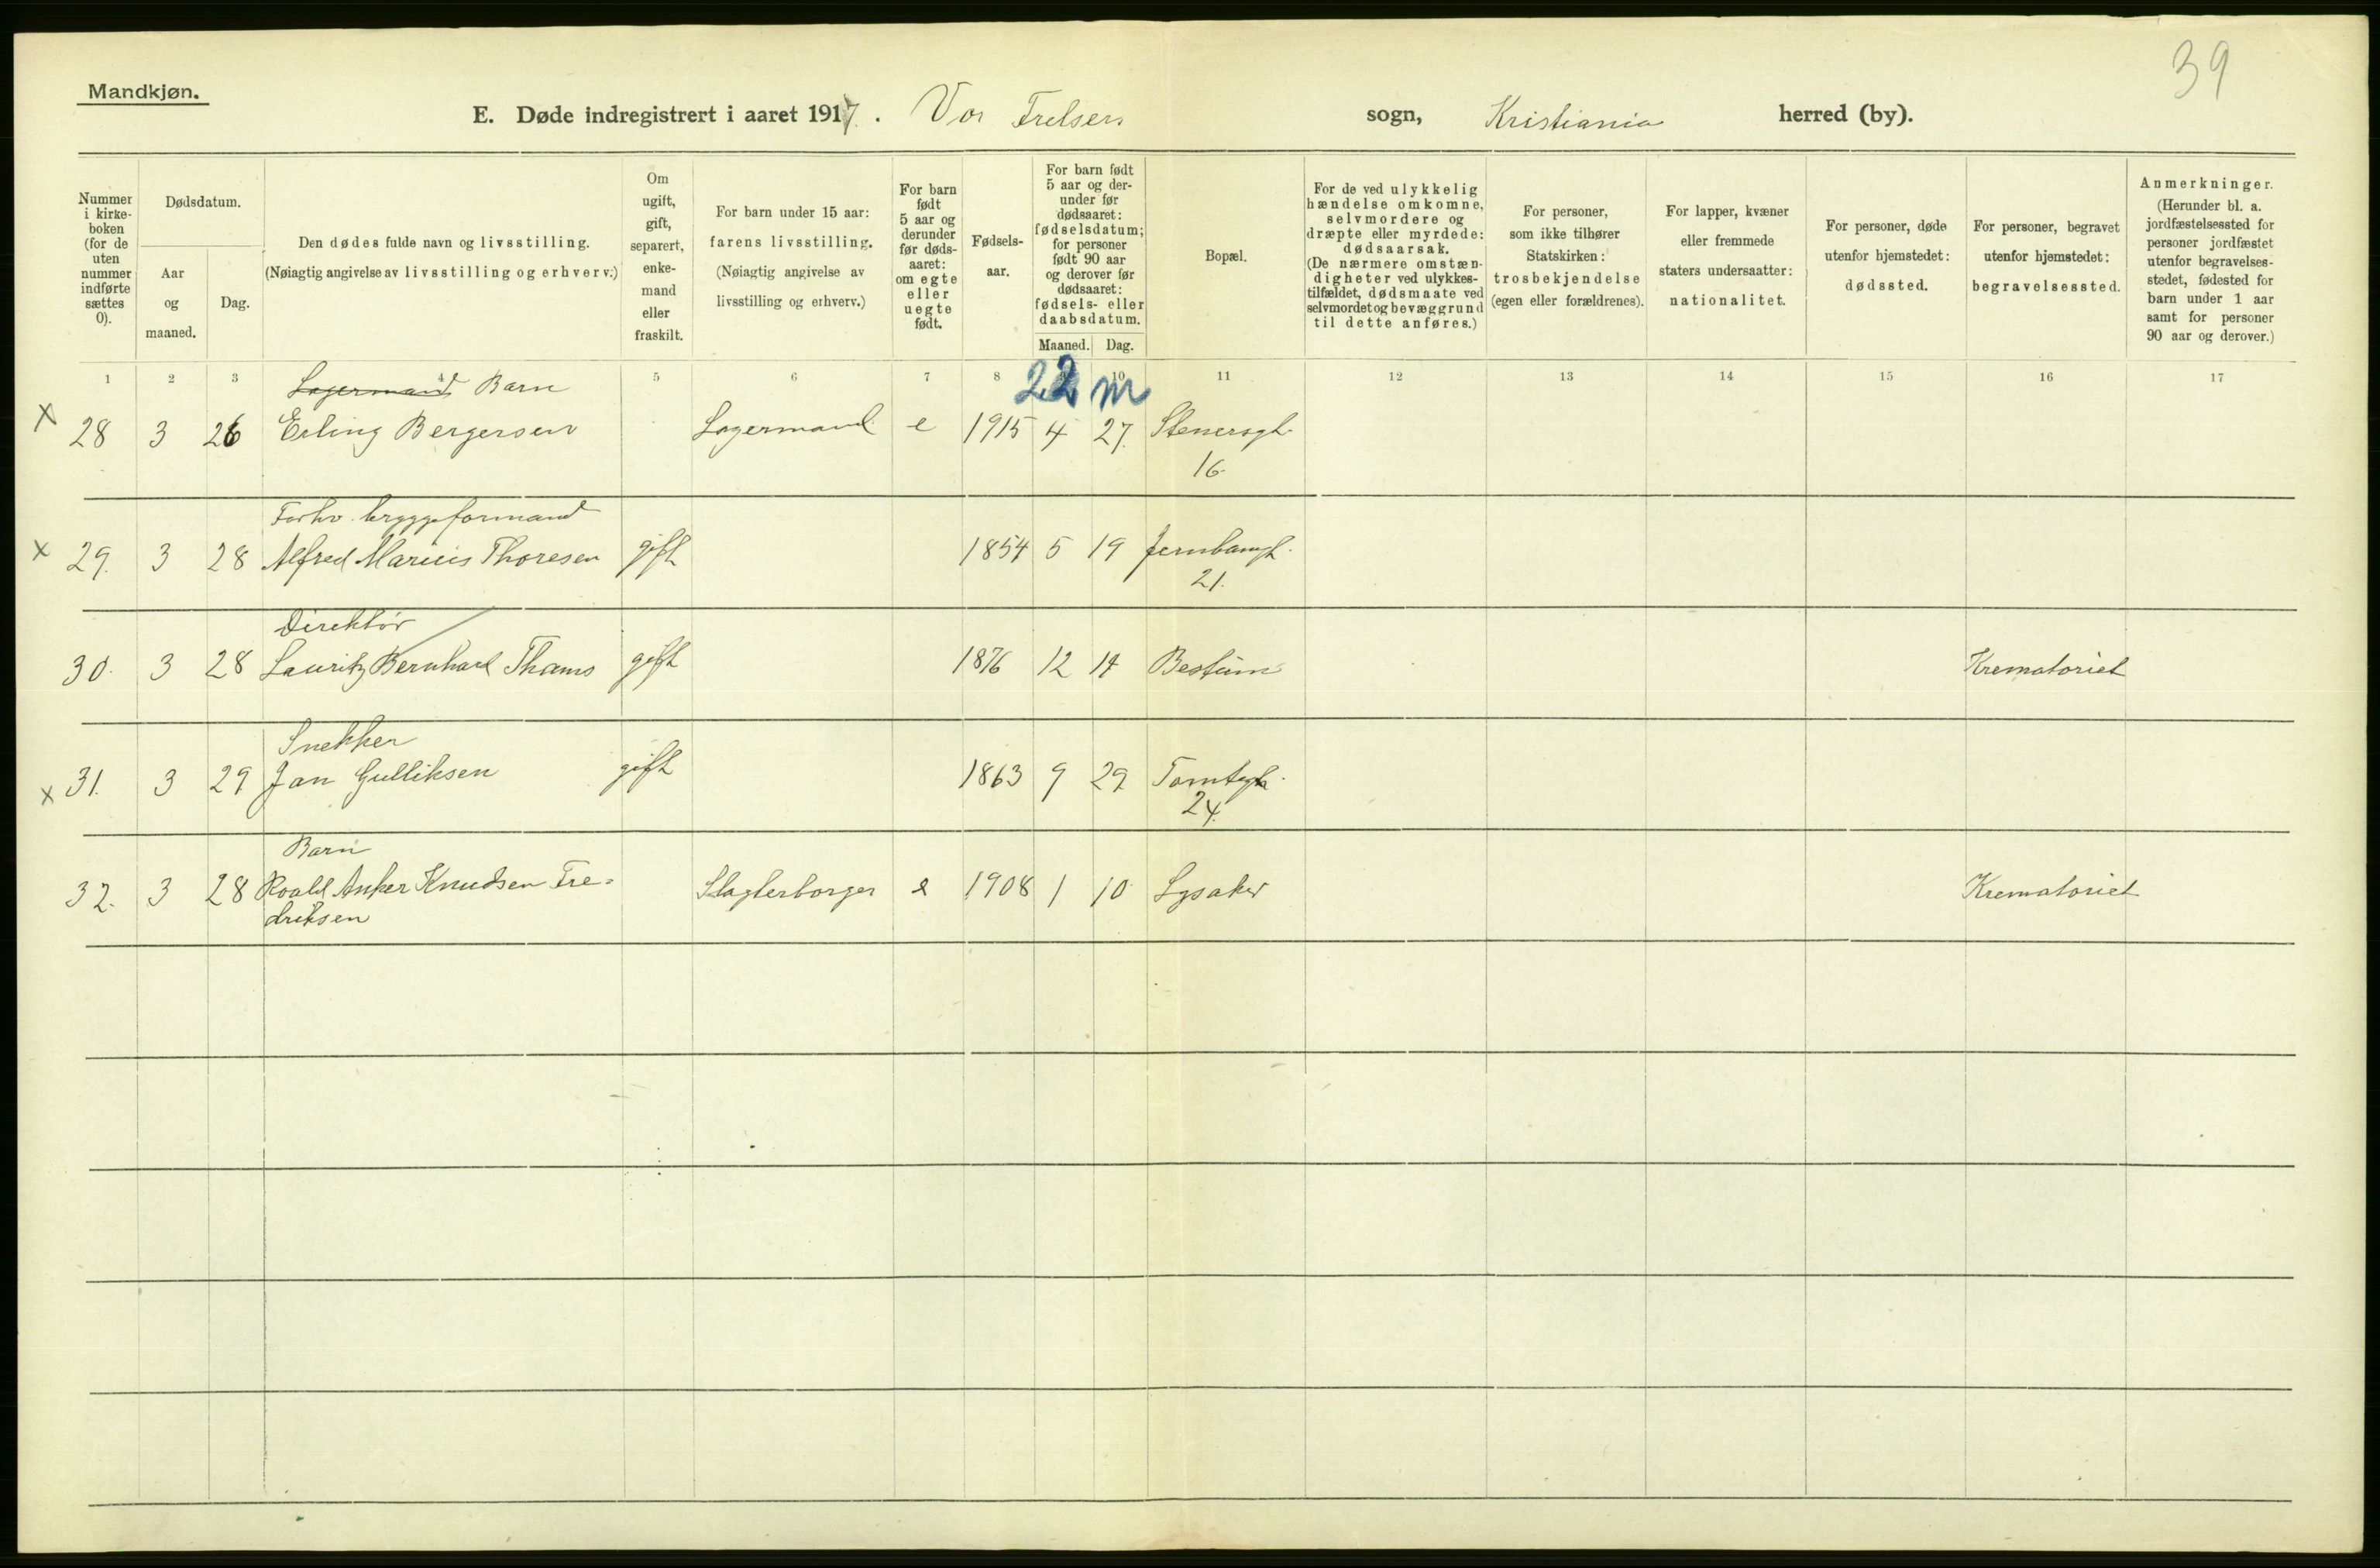 39
Mandkjøn.
E. Døde indregistrert i aaret 1917. Vor Frelsers sogn, Kristiania herred (by).
Nummer i kirke-boken (for de uten nummer indførte sættes 0).
Dødsdatum.
Aar og maaned.
Dag.
Den dødes fulde navn og livsstilling.
(Nøiagtig angivelse av livsstilling og erhverv.)
Om ugift, gift, separert, enke-mand eller fraskilt.
For barn under 15 aar: farens livsstilling. (Nøiagtig angivelse av livsstilling og erhverv.)
For barn født 5 aar og derunder før døds-aaret: om egte eller uegte født.
Fødsels-aar.
For barn født 5 aar og der-under før dødsaaret: fødselsdatum; for personer født 90 aar og derover før dødsaaret: fødsels- eller daabsdatum.
Maaned. Dag.
Bopæl.
For de ved ulykkelig hændelse omkomne, selvmordere og dræpte eller myrdede: dødsaarsak. (De nærmere omstæn-digheter ved ulykkes-tilfældet, dødsmaate ved selvmordet og bevæggrund til dette anføres.)
For personer, som ikke tilhører Statskirken: trosbekjendelse (egen eller forældrenes).
For lapper, kvæner eller fremmede staters undersaatter: nationalitet.
For personer, døde utenfor hjemstedet: dødssted.
For personer, begravet utenfor hjemstedet: begravelsessted.
Anmerkninger. (Herunder bl. a. jordfæstelsessted for personer jordfæstet utenfor begravelses-stedet, fødested for barn under 1 aar samt for personer 90 aar og derover.)
1 2 3 4 5 6 7 8 9 10 11 12 13 14 15 16 17
22 m
Lagermand Barn
x 28 3 26 Erling Bergersen Lagermand e 1915 4 27. Stenersgt.
16.
Forhv. bryggeformand
x 29. 3 28 Alfred Marius Thoresen gift 1854 5 19 Jernbangt.
21.
Direktør
30. 3 28 Lauritz Bernhard Thams gift 1876 12 14 Bestum Krematoriet
Snekker
x 31. 3 29 Jan Gulliksen gift 1863 9 29 Tomtegt.
24.
Barn
32. 3 28 Roald Anker Knudsen Fre-
driksen Slagterborger e 1908 1 10 Lysaker Krematoriet